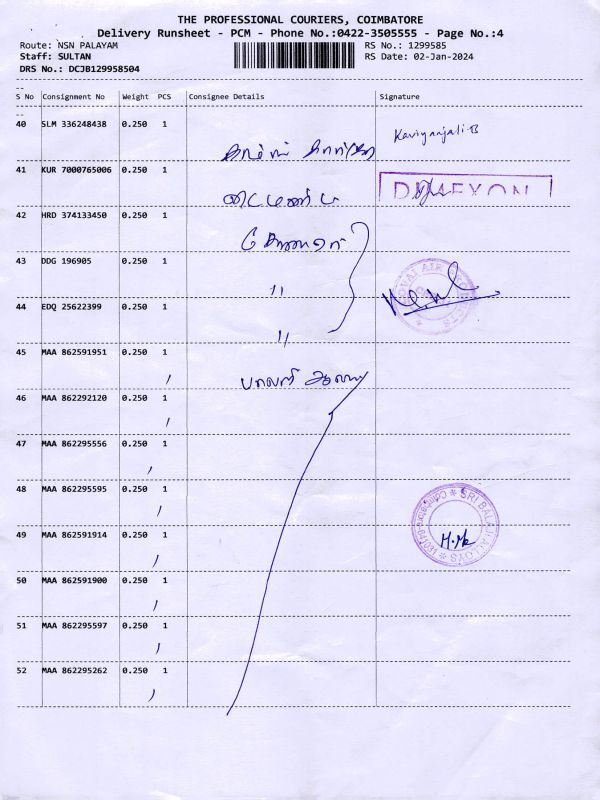 THE PROFESSIONAL COURIERS, COIMBATORE
Delivery Runsheet - PCM - Phone No.:0422-3505555 - Page No.:4
Route: NSN PALAYAM
RS No.: 1299585
Staff: SULTAN
RS Date: 02-Jan-2024
DRS No.: DCJB129958504
--
S No Consignment No Weight PCS Consignee Details Signature
--
40 SLM 336248438 0.250 1 Kaviyanjali B
41 KUR 7000765006 0.250 1
42 HRD 374133450 0.250 1
43 DDG 196905 0.250 1 "
44 EDQ 25622399 0.250 1 "
45 MAA 862591951 0.250 1
46 MAA 862292120 0.250 1
47 MAA 862295556 0.250 1
48 MAA 862295595 0.250 1
SRI BALAJI ALLOYS
49 MAA 862591914 0.250 1
50 MAA 862591900 0.250 1
51 MAA 862295597 0.250 1
52 MAA 862295262 0.250 1